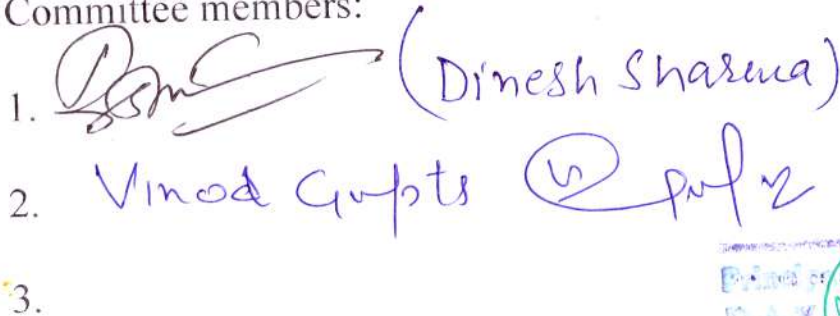 Committee members:
1. (Dinesh Sharma)
2. Vinod Gupta
3.